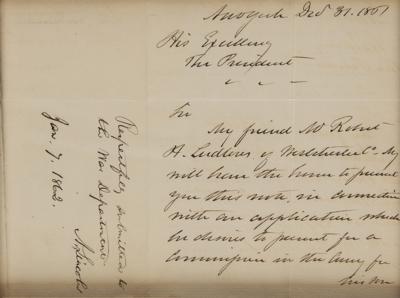 New York Dec 31. 1861
His Excellency
The President
Sir
My friend Mr Robert
H. Ludlow, of Westchester Co. N.Y
will have the honor to present
you this note, in connection
with an application which
he desires to present for a
Commission in the Army for
his son
Respectfully submitted to
the War Department.
A. Lincoln
Jan. 7. 1862.